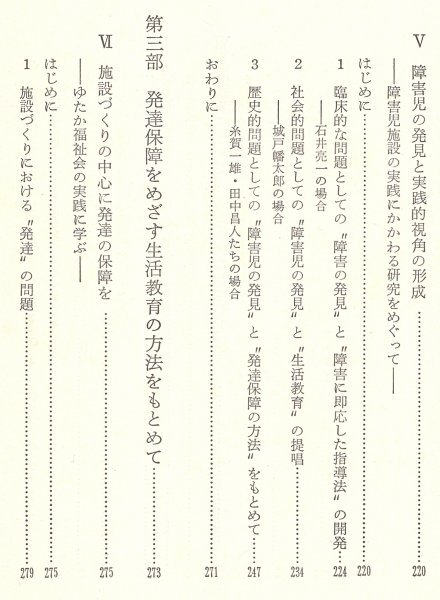 Ⅴ 障害児の発見と実践的視角の形成……220
――障害児施設の実践にかかわる研究をめぐって――
はじめに……220
1 臨床的な問題としての〝障害の発見〟と〝障害に即応した指導法〟の開発……224
――石井亮一の場合
2 社会的問題としての〝障害児の発見〟と〝生活教育〟の提唱……234
――城戸幡太郎の場合
3 歴史的問題としての〝障害児の発見〟と〝発達保障の方法〟をもとめて……247
――糸賀一雄・田中昌人たちの場合
おわりに……271
第三部 発達保障をめざす生活教育の方法をもとめて……273
Ⅵ 施設づくりの中心に発達の保障を……275
――ゆたか福祉会の実践に学ぶ――
はじめに……275
1 施設づくりにおける〝発達〟の問題……279